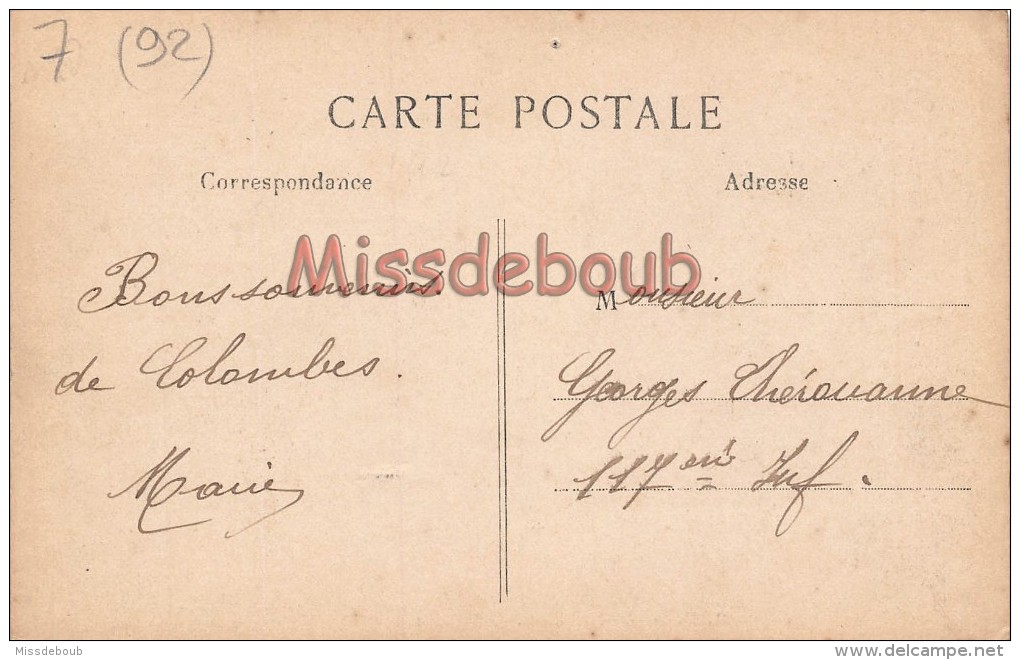 7 (92)
CARTE POSTALE
Correspondance
Adresse
Missdeboub
Bons souvenirs.
de Colombes.
Marie
Monsieur
Georges Thérouanne
117eme Inf.
Missdeboub
www.delcampe.net